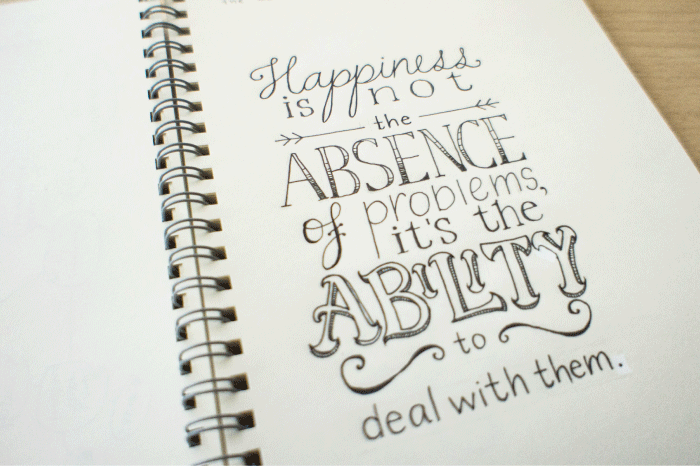 Happiness
is not
the
ABSENCE
of problems,
it's the
ABILITY
to
deal with them.